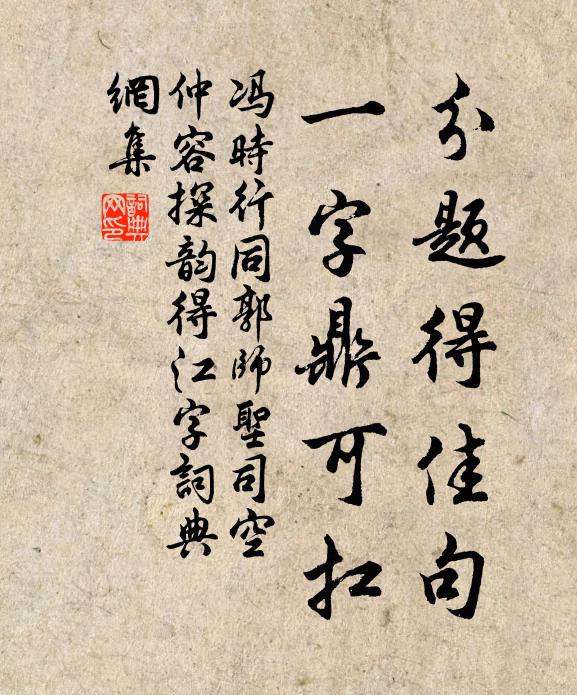 分题得佳句
一字鼎可扛
冯時行同郭师聖司空
仲容探韵得江字詞典
網集
詞典網印